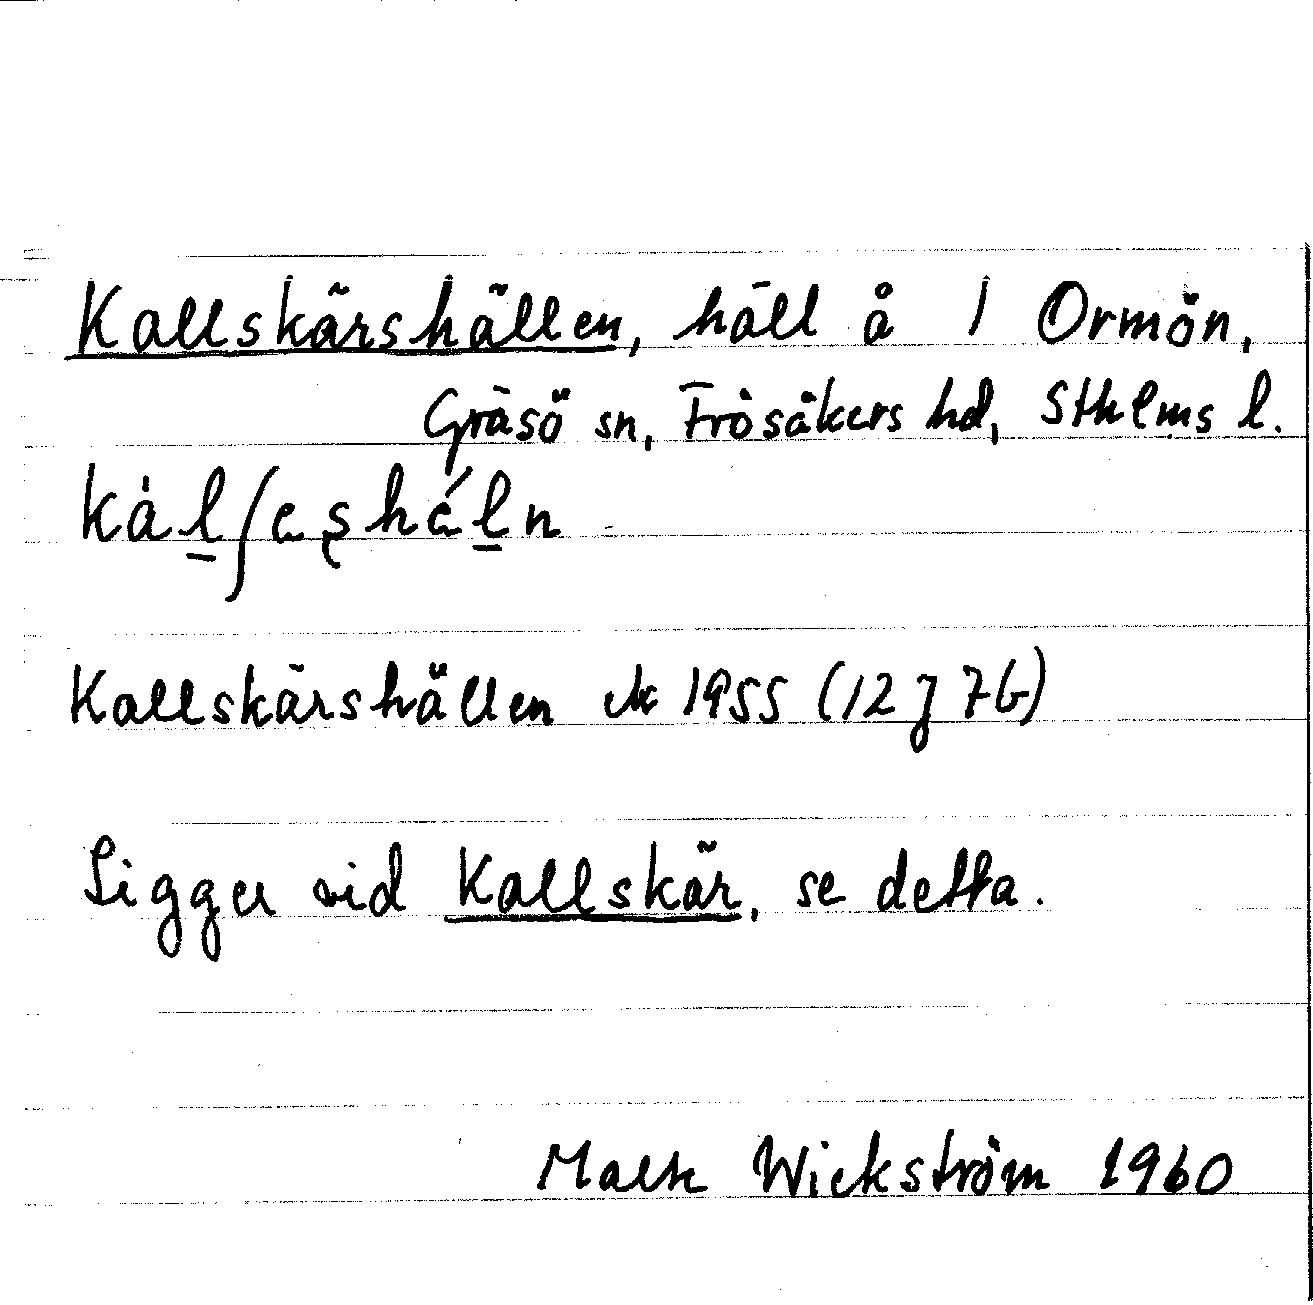 Kallskärshällen, häll å / Ormön,
Gräsö sn, Frösåkers hd, Sthlms l.
kàl̲ʃeshél̲n
Kallskärshällen ek 1955 (12 J 7b)
Ligger vid Kallskär, se detta.
Wickström 1960